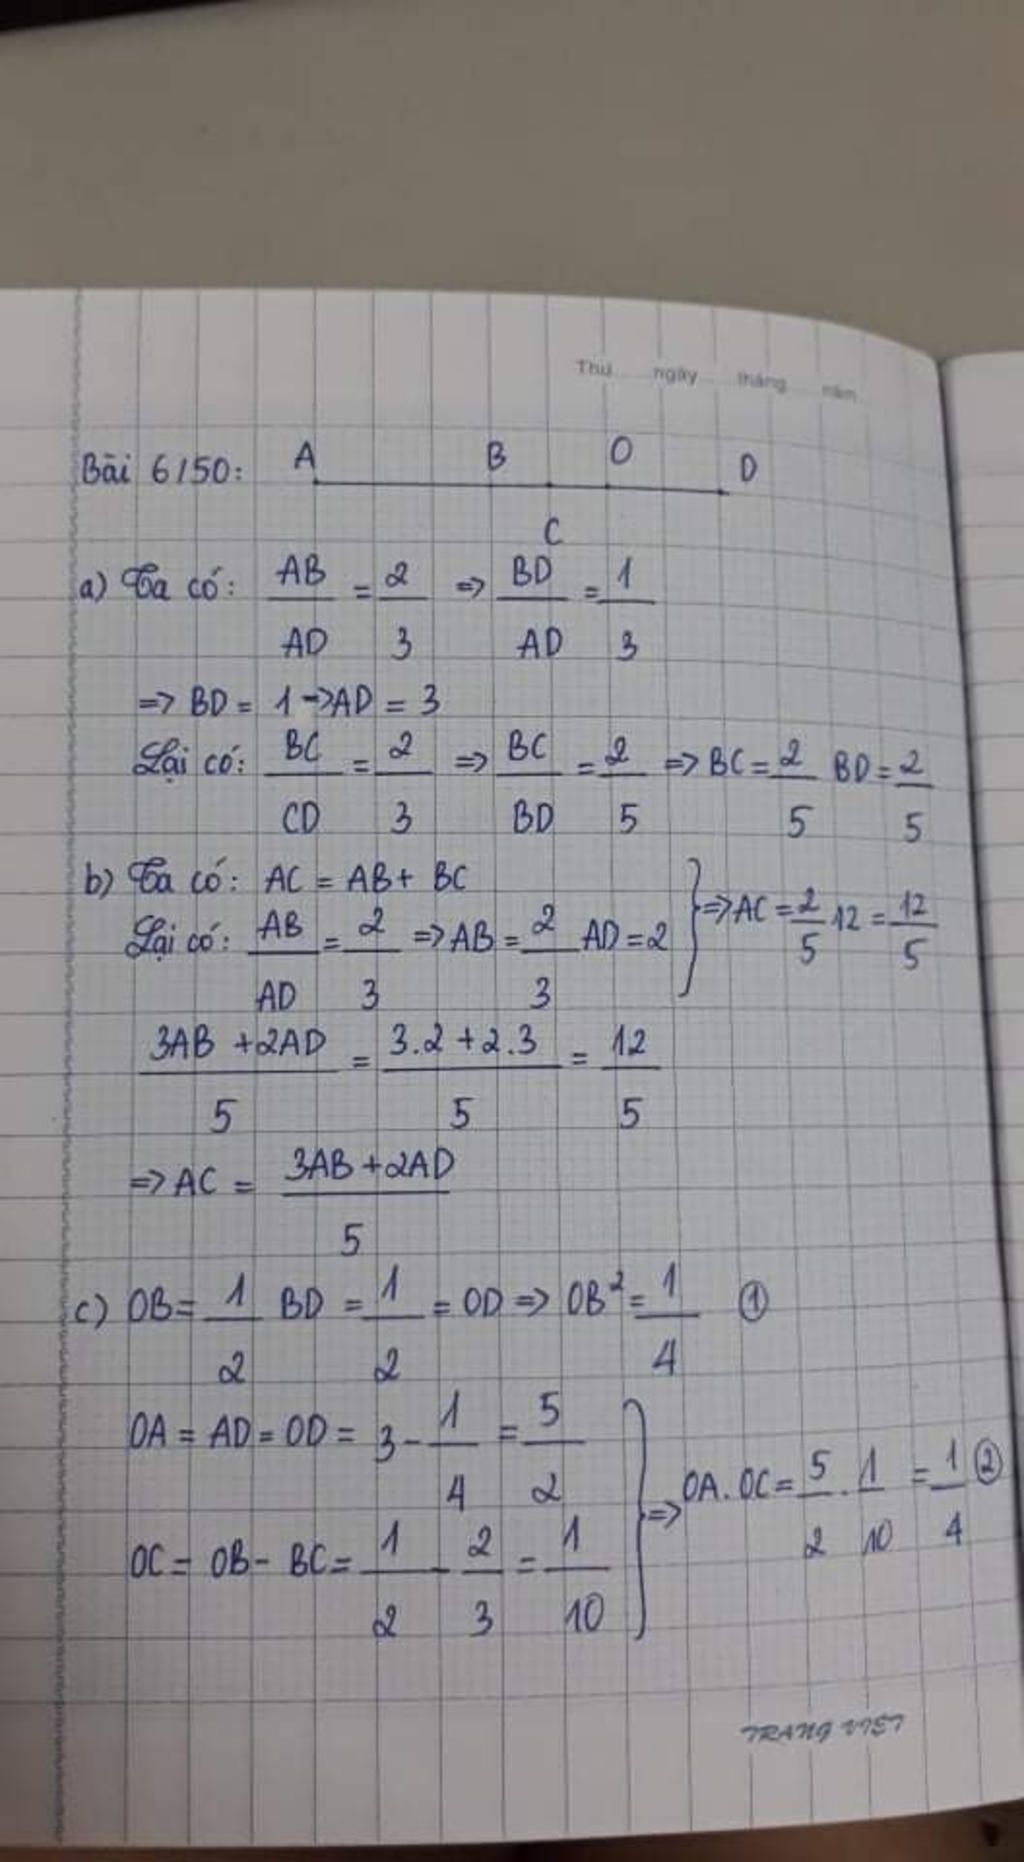 Thứ ngày tháng năm
Bài 6/50: A B O D
C
a) Ta có: AB/AD = 2/3 => BD/AD = 1/3
=> BD = 1 -> AD = 3
Lại có: BC/CD = 2/3 => BC/BD = 2/5 => BC = 2/5 BD = 2/5
b) Ta có: AC = AB + BC
Lại có: AB/AD = 2/3 => AB = 2/3 AD = 2 } => AC = 2/5 12 = 12/5
3AB + 2AD/5 = 3.2 + 2.3/5 = 12/5
=> AC = 3AB + 2AD/5
c) OB = 1/2 BD = 1/2 = OD => OB² = 1/4 ①
OA = AD = OD = 3 - 1/4 = 5/2
OC = OB - BC = 1/2 - 2/3 = 1/10 } => OA . OC = 5/2 . 1/10 = 1/4 ②
TRANG VIET